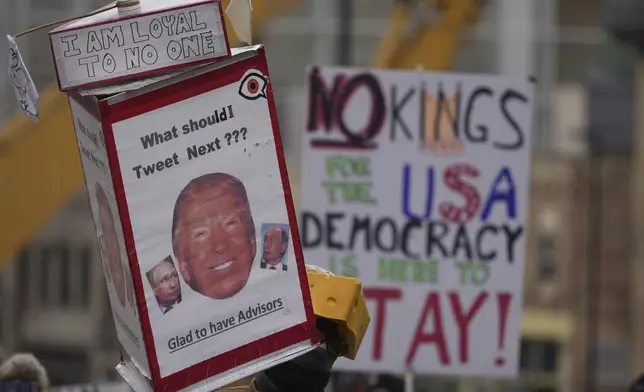 I AM LOYAL
TO NO ONE
What should I
Tweet Next ???
Glad to have Advisors
NO KINGS
FOR
THE USA
DEMOCRACY
IS HERE TO
STAY!